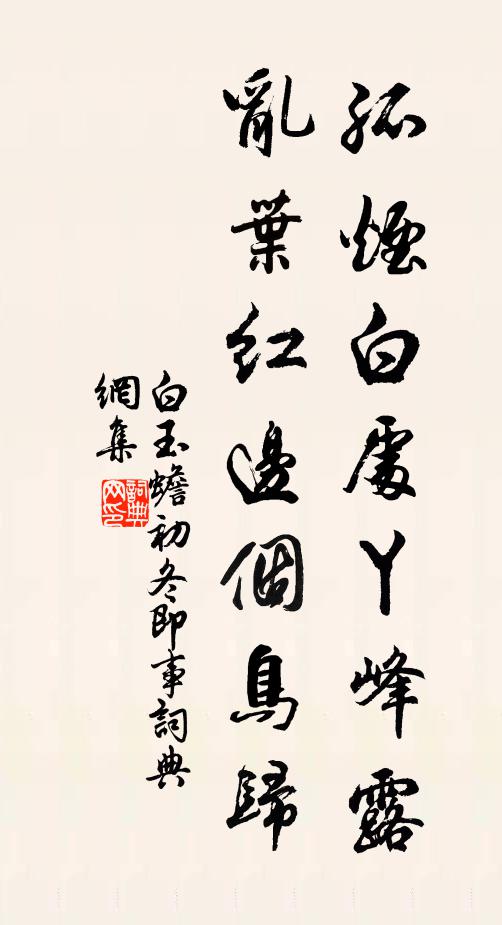 孤煙白處丫峰露
亂葉紅邊個鳥歸
白玉蟾初冬即事詞典
網集
詞典
网印